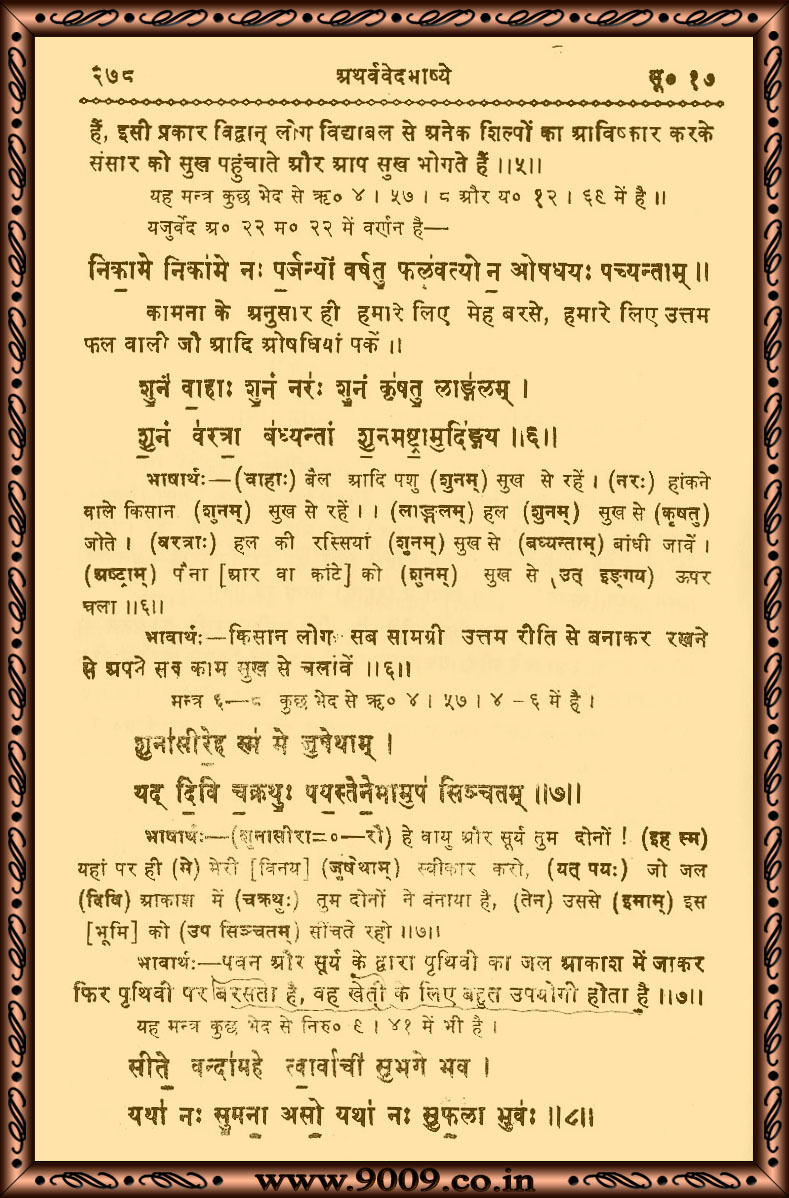 २७८ अथर्ववेदभाष्ये सू० १७
हैं, इसी प्रकार विद्वान् लोग विद्याबल से अनेक शिल्पों का आविष्कार करके
संसार को सुख पहुंचाते और आप सुख भोगते हैं ।।५।।
यह मन्त्र कुछ भेद से ऋ० ४ । ५७ । ८ और य० १२ । ६९ में है ।।
यजुर्वेद अ० २२ म० २२ में वर्णन है—
निका॒मे निका॑मे नः प॒र्जन्यो॑ वर्षतु॒ फल॑वत्यो न॒ ओषधयः पच्यन्ताम् ।।
कामना के अनुसार ही हमारे लिए मेह बरसे, हमारे लिए उत्तम
फल वाली जौ आदि ओषधियां पकें ।।
शु॒नं वा॒हाः शु॒नं नरः॑ शु॒नं कृ॑षतु॒ लाङ्ग॑लम् ।
शु॒नं व॑र॒त्रा ब॑ध्यन्तां शु॒नमष्ट्रा॒मुदि॑ङ्गय ।।६।।
भाषार्थः—(वाहाः) बैल आदि पशु (शुनम्) सुख से रहें । (नरः) हांकने
वाले किसान (शुनम्) सुख से रहें । । (लाङ्गलम्) हल (शुनम्) सुख से (कृषतु)
जोते । (वरत्राः) हल की रस्सियां (शुनम्) सुख से (बध्यन्ताम्) बांधी जावें ।
(अष्ट्राम्) पैना [आर वा कांटे] को (शुनम्) सुख से (उत् इङ्गय) ऊपर
चला ।।६।।
भावार्थः—किसान लोग सब सामग्री उत्तम रीति से बनाकर रखने
से अपने सब काम सुख से चलावें ।।६।।
मन्त्र ६—८ कुछ भेद से ऋ० ४ । ५७ । ४ – ६ में है ।
शुना॑सीरे॒ह स्म॑ मे जु॒षेथाम् ।
यद् दि॒वि च॒क्रथुः॒ पय॒स्तेने॒मामुप॑ सिञ्चतम् ।।७।।
भाषार्थः—(शुनासीरा=०—रौ) हे वायु और सूर्य तुम दोनों ! (इह स्म)
यहां पर ही (मे) मेरी [विनय] (जुषेथाम्) स्वीकार करो, (यत् पयः) जो जल
(दिवि) आकाश में (चक्रथुः) तुम दोनों ने बनाया है, (तेन) उससे (इमाम्) इस
[भूमि] को (उप सिञ्चतम्) सींचते रहो ।।७।।
भावार्थः—पवन और सूर्य के द्वारा पृथिवी का जल आकाश में जाकर
फिर पृथिवी पर बरसता है, वह खेती के लिए बहुत उपयोगी होता है ।।७।।
यह मन्त्र कुछ भेद से निरु० ९ । ४१ में भी है ।
सीते॒ वन्दा॑महे त्वा॒र्वाची॑ सुभगे भव ।
यथा॑ नः सु॒मना॒ असो॒ यथा॑ नः सुफ॒ला भुवः॑ ।।८।।
www.9009.co.in